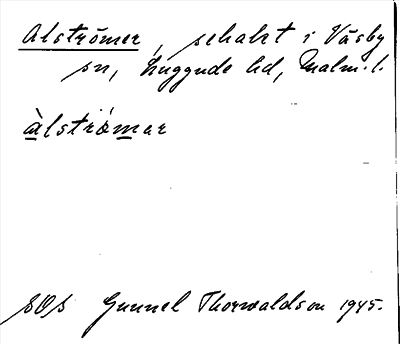 Alströmer, schakt i Väsby
sn, Luggude hd, Malm. l.
àlströ́mar
SOS Gunnel Thorwaldson 1945.